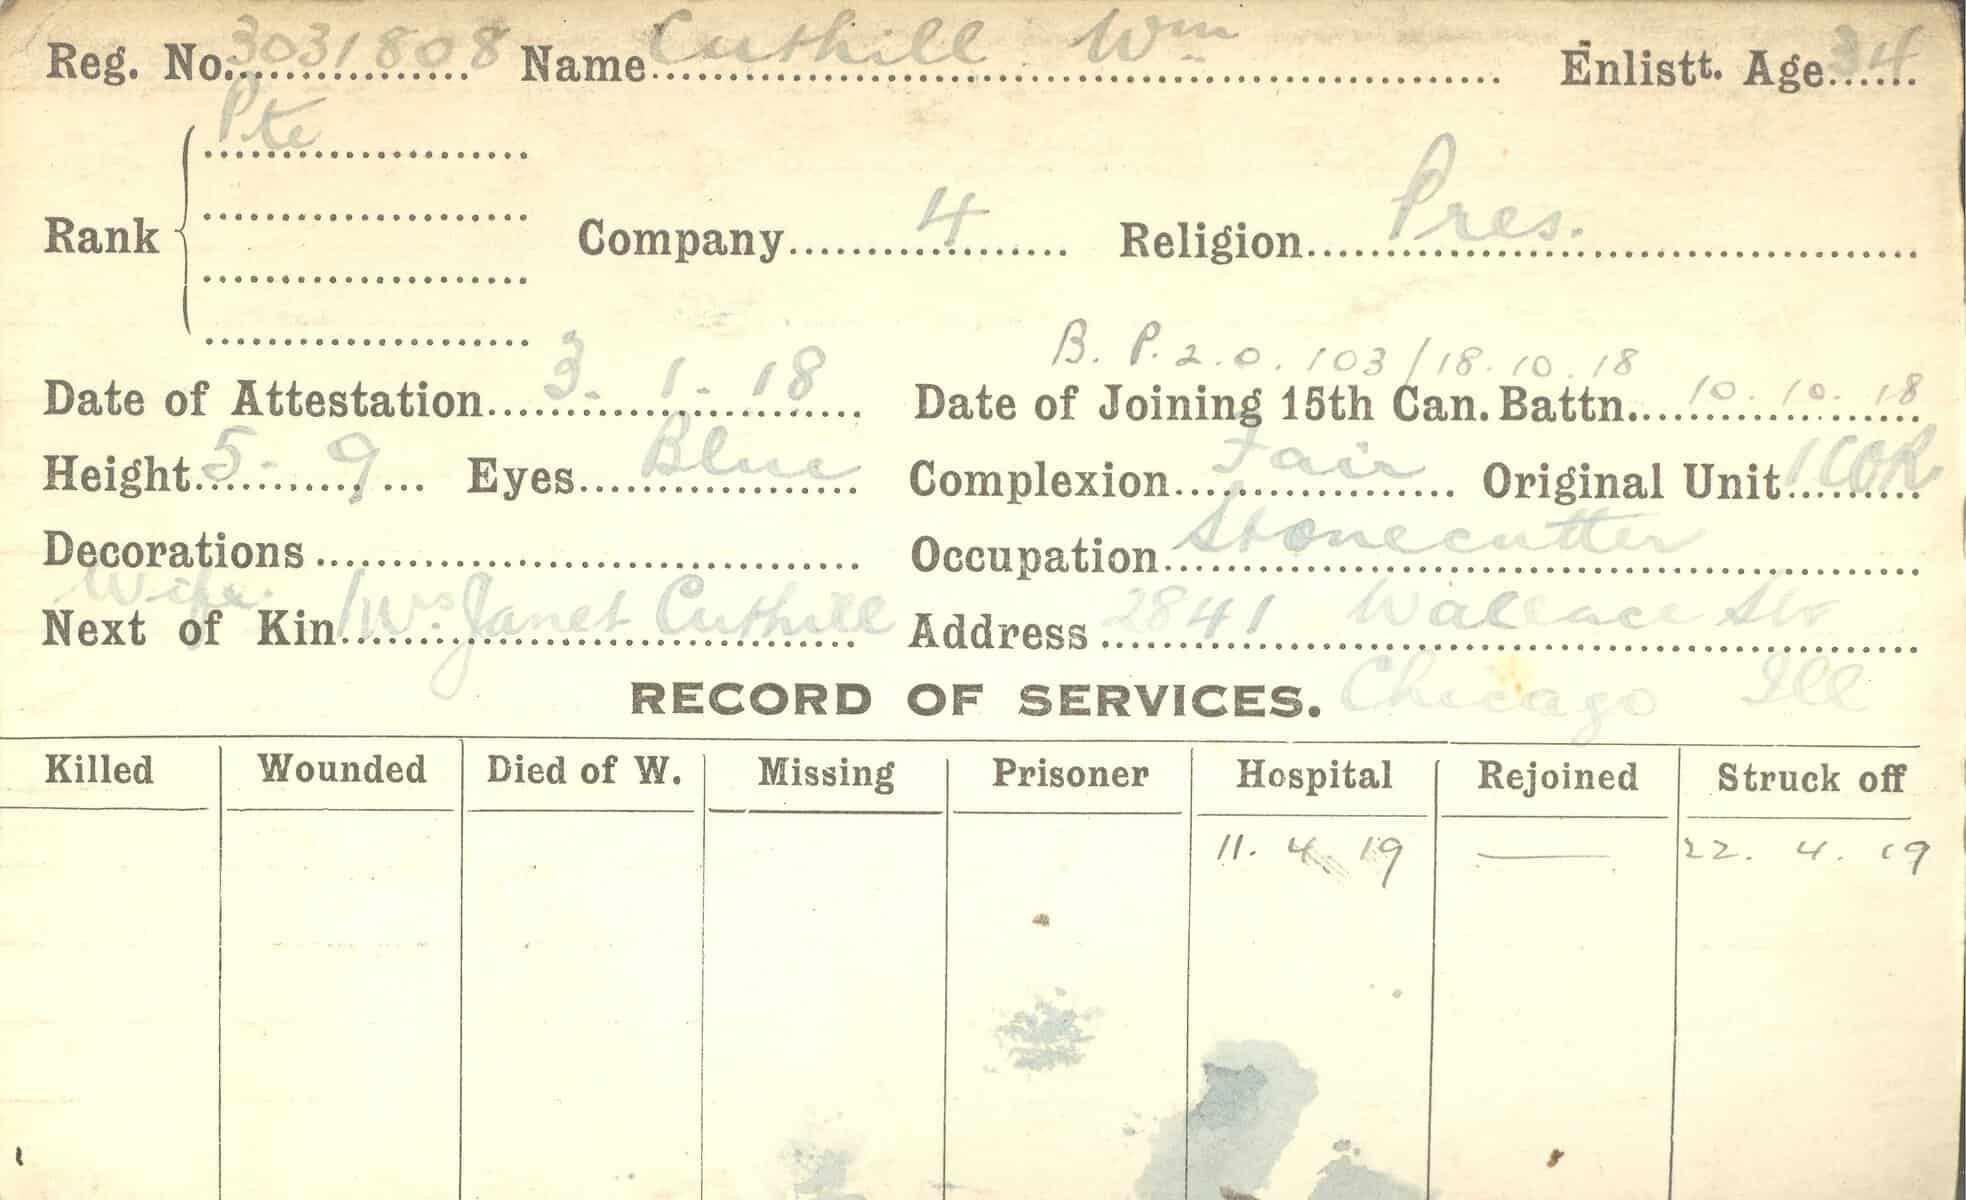 Reg. No. 3031808 Name Cuthill Wm Enlistt. Age 34
Pte
Rank Company 4 Religion Pres.
B. P. 2. 0. 103/18.10.18
Date of Attestation 3. 1. 18 Date of Joining 15th Can. Battn. 10. 10. 18
Height 5-9 Eyes Blue Complexion Fair Original Unit 1 COR
Decorations Occupation Stonecutter
Wife.
Next of Kin Mrs. Janet Cuthill Address 2841 Wallace Str
RECORD OF SERVICES. Chicago Ill
Killed Wounded Died of W. Missing Prisoner Hospital Rejoined Struck off
11. 4. 19 — 22. 4. 19